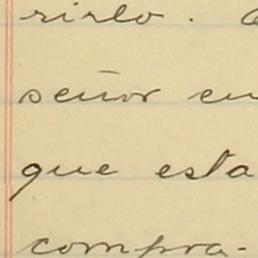 rirlo.
señor en
que esta
compra-